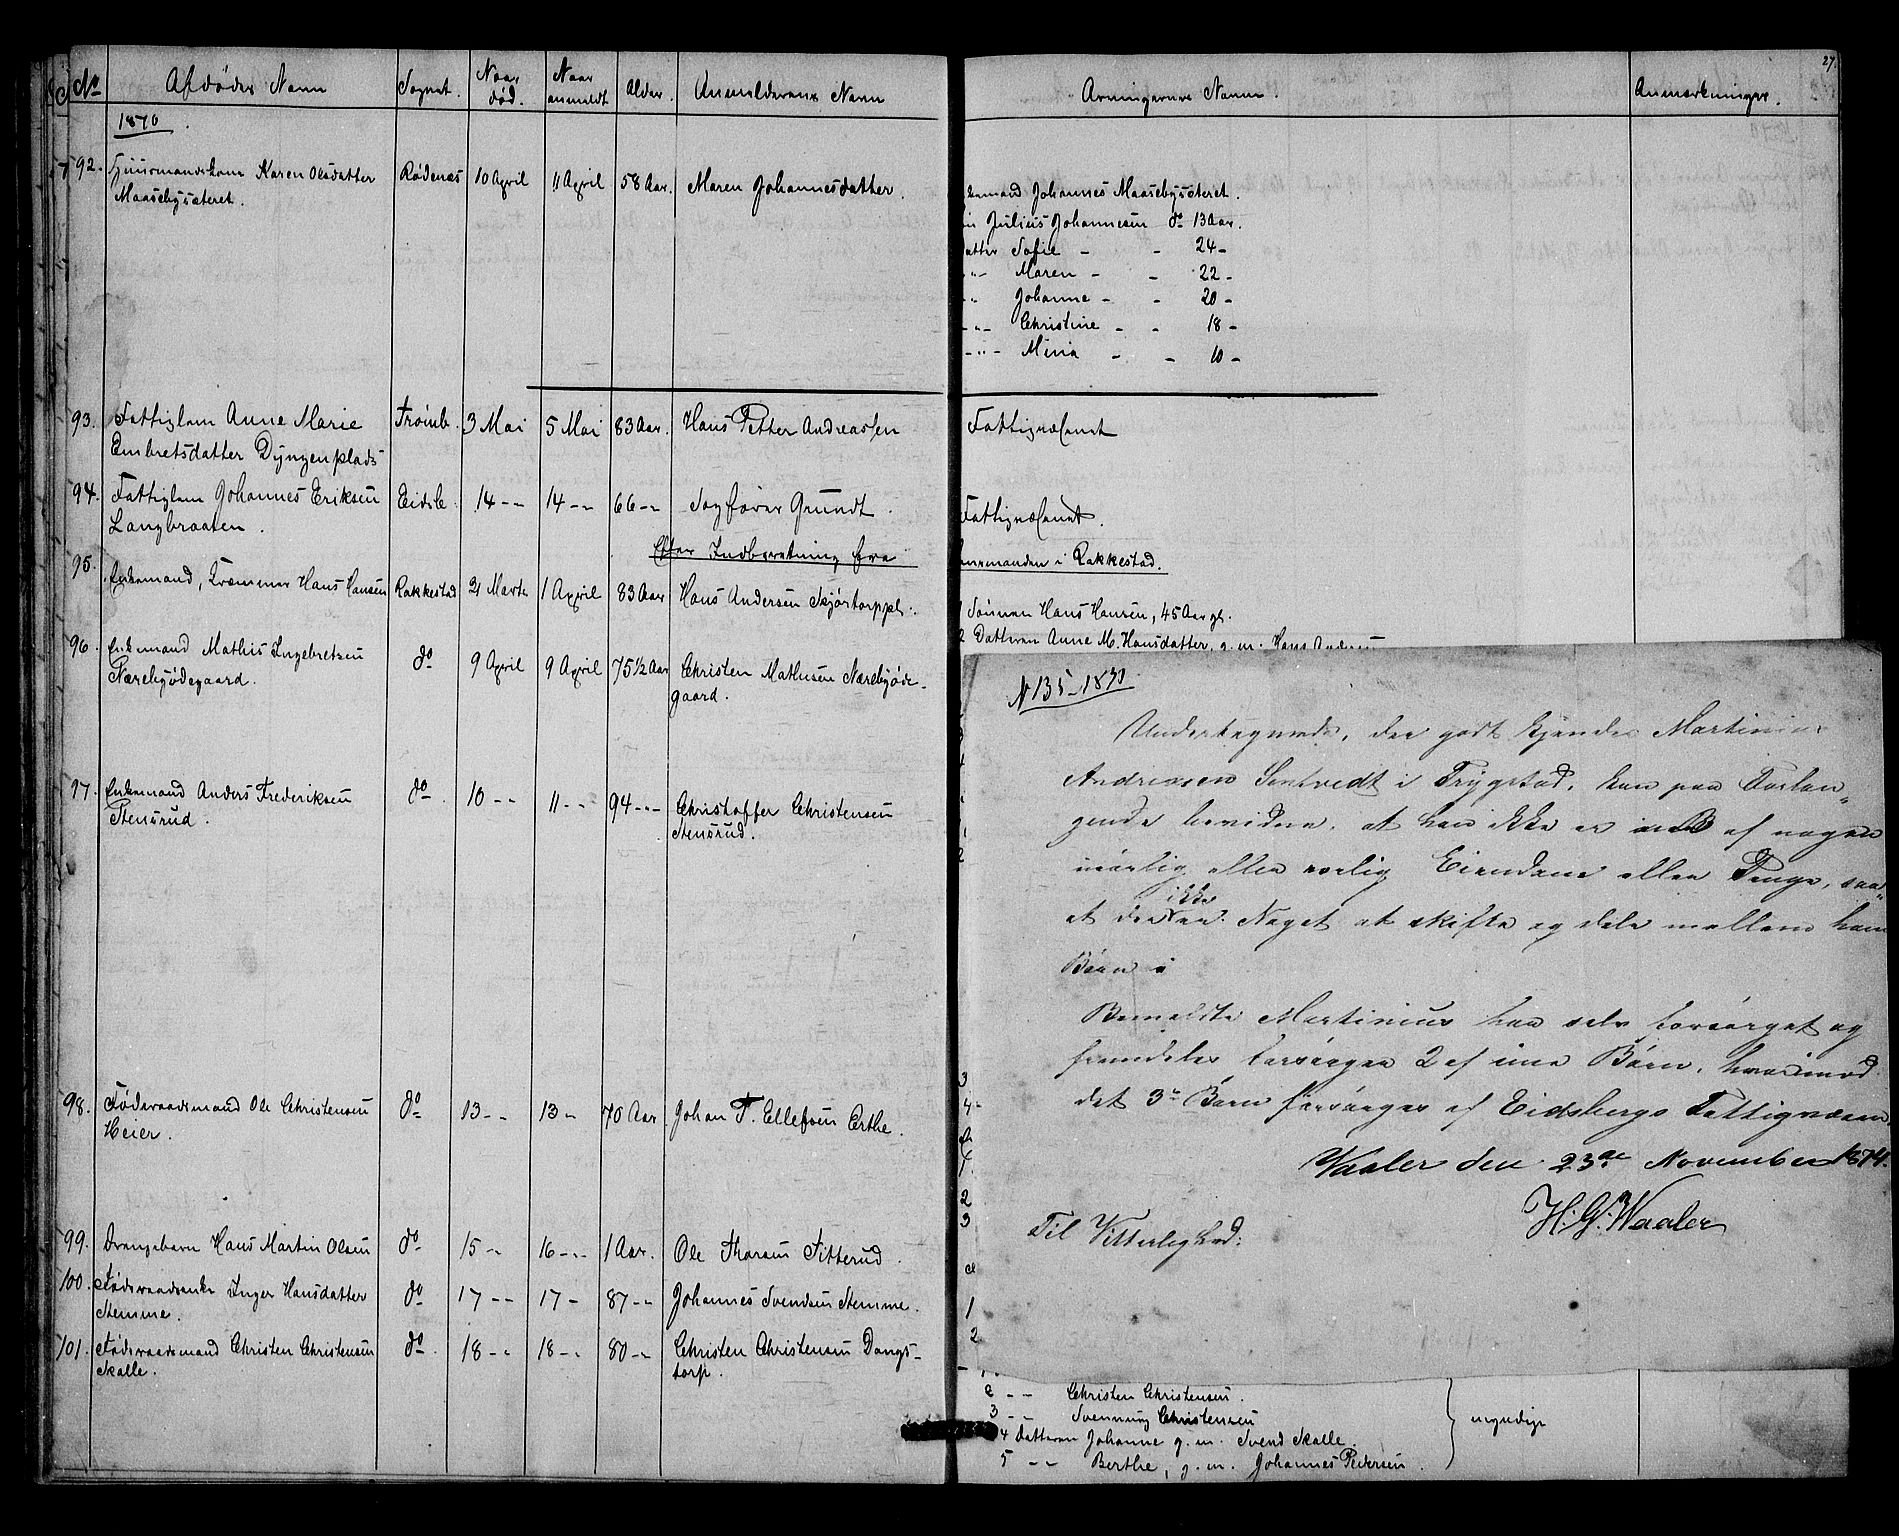 No Afdødes Navn Sognet. Naar død. Naar anmeldt Alder Anmelderens Navn
1870
92. Huusmandskone Karen Olsdatter Rødenæs 10 April 11 April 58 Aar. Maren Johannesdatter.
Maasebysæteret.
93. Fattiglem Anne Marie Trømb. 3 Mai 5 Mai 83 Aar. Hans Petter Andreassen
Embretsdatter Dyngenplads
94. Fattiglem Johannes Eriksen Eidsb. 14 -"- 14 -"- 66 -"- Sagfører Grundt.
Langbraaten.
Efter Indberetning fra
95. Enkemand, Hans Hansen Rakkestad 21 Marts 1 April 83 Aar Hans Andersen
96. Enkemand Mathis Ingebretsen do 9 April 9 April 75½ Aar Christen Mathisen Nærebyøde-
Nærebyødegaard. gaard.
97. Enkemand Anders Frederiksen do 10 -"- 11 -"- 94 -"- Christoffer Christensen
Stensrud. Stensrud.
98. Føderaadsmand Ole Christensen do 13 -"- 13 " 70 Aar. Johan T. Ellefsen Erthe.
Heier.
99. Drengebarn Hans Martin Olsen do 15 -"- 16 -"- 1 Aar. Ole Thoresen Fitterud.
100. Føderaadsenke Inger Hansdatter do 17 -"- 17 - 87 -"- Johannes Svendsen Stemme.
Stemme.
101. Føderaadsmand Christen Christensen do 18 -"- 18 -"- 80 -"- Christen Christensen Dangs-
Skalle. torp.
27.
Arvingernes Navne Anmærkninger.
kemand Johannes Maasebysæteret.
Julius Johannesen do 13 Aar.
atter Sofie - - 24 -
-"- Maren - - 22 -
-"- Johanne - - 20 -
-"- Christine - - 18 -
-"- Mina - - 10 -
Fattigvæsenet
Fattigvæsenet.
ensmanden i Rakkestad.
1 Sønnen Hans Hansen, 45 Aar gl.
2 Datteren Anne M. Hansdatter, g. m. Hans Andersen
N 135-1870
Undertegnede, der godt kjender Martinius
Andreasen Sentvedt i Trygstad, kan paa Forlan-
gende bevidne, at han ikke er af nogen
eller Eiendom eller Penge, saa
at der ikke var Noget at skifte og dele mellem hans
Børn
Bemeldte Martinius har selv forsørget og
fremdeles forsørger 2 af sine Børn, hvorimod
det 3de Barn forsørges af Eidsbergs Fattigvæsen,
Vaaler den 23de November 1874.
H. G. Waaler
Til Vitterlighed:
2 - - Christen Christensen.
3 - - Svenning Christensen myndige
4 Datteren Johanne g. m. Svend Skalle.
5 -"- Berthe, g. m. Johannes Pedersen.